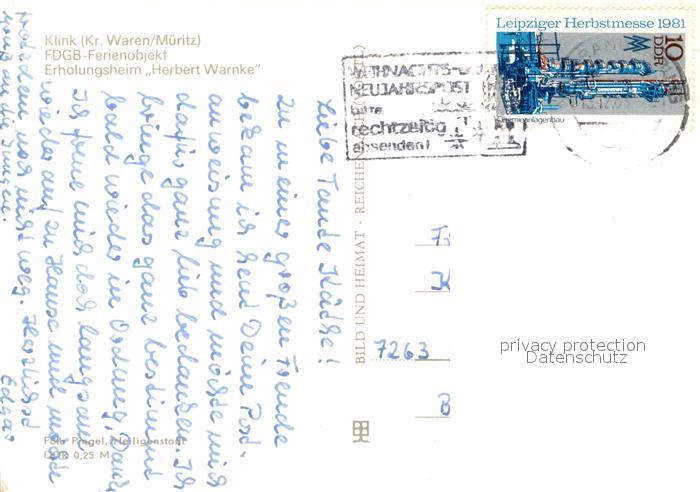 Klink (Kr. Waren/Müritz)
FDGB-Ferienobjekt
Erholungsheim „Herbert Warnke"
Leipziger Herbstmesse 1981
10
DDR
Chemieanlagenbau
WEIHNACHTS-
NEUJAHRSPOST
bitte
rechtzeitig
absenden!
Liebe Tante Käthe!
Zu meiner großen Freude
bekam ich heut Deine Post-
anweisung und möchte mich
dafür ganz lieb bedanken. Ich
bringe das ganz bestimmt
bald wieder in Ordnung, Dank
Ich freue mich doch langsam
wieder auf zu Hause und möchte
trotzdem noch nicht weg. Herzlichst
Gruß an die Jungen. Edgar
BILD UND HEIMAT · REICHENBACH
7263
privacy protection
Datenschutz
Foto Pingel, Heiligenstadt
DDR 0,25 M